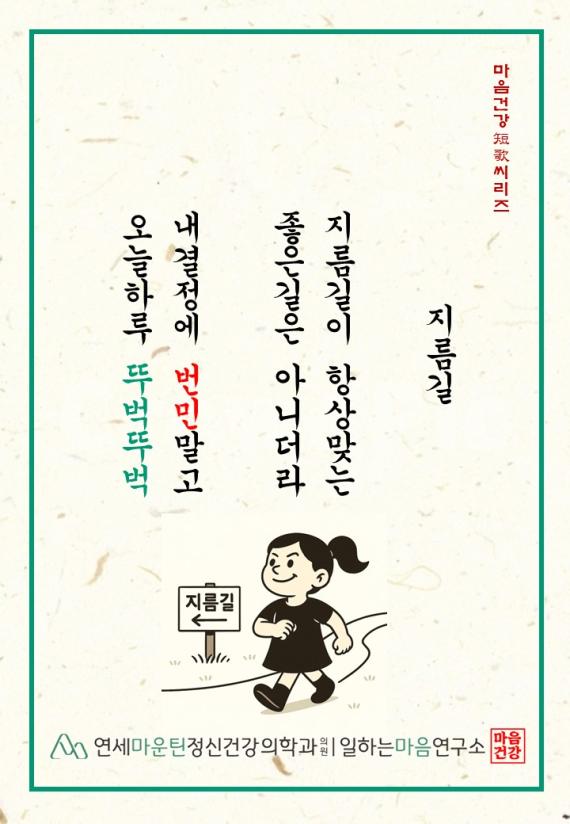 마음건강 短歌 씨리즈
지름길
지름길이 항상맞는
좋은길은 아니더라
내결정에 번민말고
오늘하루 뚜벅뚜벅
지름길
연세마운틴정신건강의학과의원 | 일하는마음연구소
마음
건강